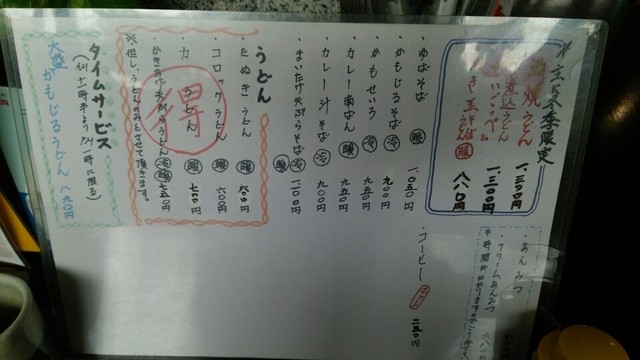 冬季限定
鍋焼うどん 一、三〇〇円
煮込うどん
一、二〇〇円
玉子そば 温 八八〇円
・ゆばそば 温 一、一五〇円
・かもじるそば 冷 九〇〇円
・かもせいろ 冷 九五〇円
・カレー南ばん 温 九五〇円
・カレー汁そば 冷 九〇〇円
・まいたけ天ぷらそば 冷 温 一、一〇〇円
うどん
・たぬきうどん 温 六〇〇円
・コロッケうどん 温 六〇〇円
・力うどん 温 七〇〇円
・かきあげ天ぷらうどん 冷 温 七五〇円
※但し、うどんのみとさせて頂きます。
得
タイムサービス
(夕方
大盛かもじるうどん 八九〇円
・コーヒー 二五〇円
・あんみつ
・クリームあんみつ